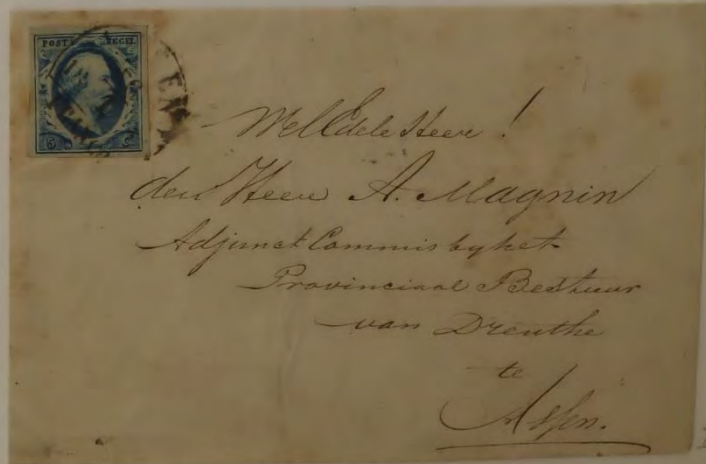 POST ZEGEL
5 C
WelEdele Heer!
den Heer A. Magnin
Adjunct Commis by het
Provinciaal Bestuur
van Drenthe
te
Assen.